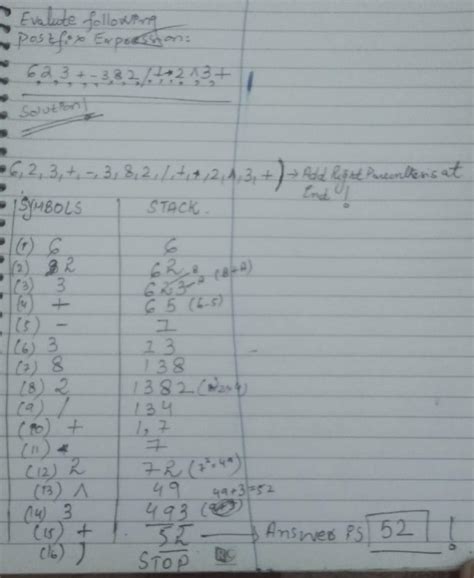 Evalute following
Postfix Expression:
6,2,3,+,-,3,8,2,/,+,*,2,^,3,+
Solution!
6,2,3,+,-,3,8,2,/,+,*,2,^,3,+) → Add Right Parenthesis at
End!
SYMBOLS STACK.
(1) 6 6
(2) 2 62
(3) 3 623
(4) + 65 (6-5)
(5) - 1
(6) 3 13
(7) 8 138
(8) 2 1382
(9) / 134
(10) + 1,7
(11) * 7
(12) 2 72 (7²=49)
(13) ^ 49 49+3=52
(14) 3 493
(15) + 52 → Answer is 52!
(16) ) STOP